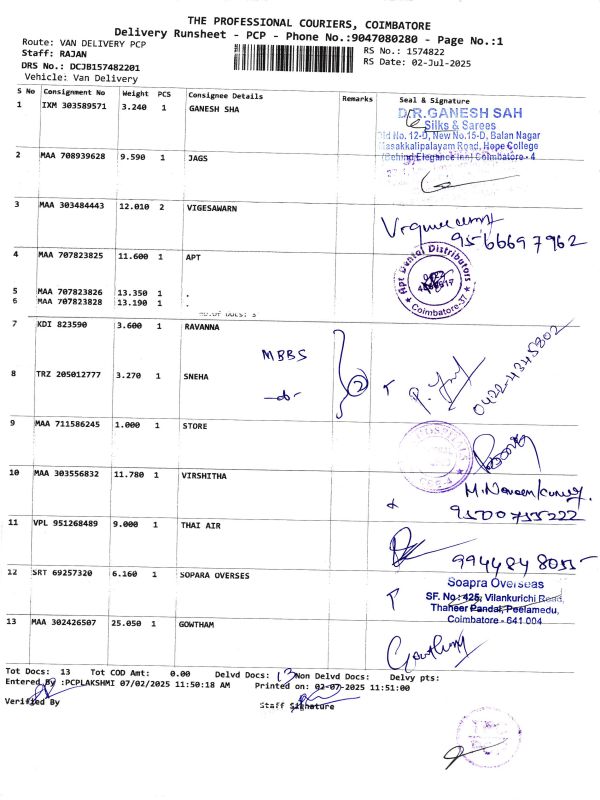 THE PROFESSIONAL COURIERS, COIMBATORE
Delivery Runsheet - PCP - Phone No.:9047080280 - Page No.:1
Route: VAN DELIVERY PCP
RS No.: 1574822
Staff: RAJAN
RS Date: 02-Jul-2025
DRS No.: DCJB157482201
Vehicle: Van Delivery
S No Consignment No Weight PCS Consignee Details Remarks Seal & Signature
1 IXM 303589571 3.240 1 GANESH SHA
D.R.GANESH SAH
Silks & Sarees
Old No. 12-D, New No.15-D, Balan Nagar
Masakkalipalayam Road, Hope College
(Behind Elegance Inn) Coimbatore - 4
2 MAA 708939628 9.590 1 JAGS
3 MAA 303484443 12.010 2 VIGESAWARN
9566697962
4 MAA 707823825 11.600 1 APT
Apt Dental Distributors
Coimbatore-37
5 MAA 707823826 13.350 1 .
6 MAA 707823828 13.190 1 .
7 KDI 823590 3.600 1 RAVANNA
MBBS
2
0422-4345802
8 TRZ 205012777 3.270 1 SNEHA
-do-
9 MAA 711586245 1.000 1 STORE
10 MAA 303556832 11.780 1 VIRSHITHA
M. Naveen kumar.
9500755222
11 VPL 951268489 9.000 1 THAI AIR
9944848055
12 SRT 69257320 6.160 1 SOPARA OVERSES
Soapra Overseas
SF. No : 425, Vilankurichi Road,
Thaneer Pandal, Peelamedu,
Coimbatore - 641 004
13 MAA 302426507 25.050 1 GOWTHAM
Gowtham
Tot Docs: 13 Tot COD Amt: 0.00 Delvd Docs: 13 Non Delvd Docs: Delvy pts:
Entered By :PCPLAKSHMI 07/02/2025 11:50:18 AM Printed on: 02-07-2025 11:51:00
Verified By
Staff Signature